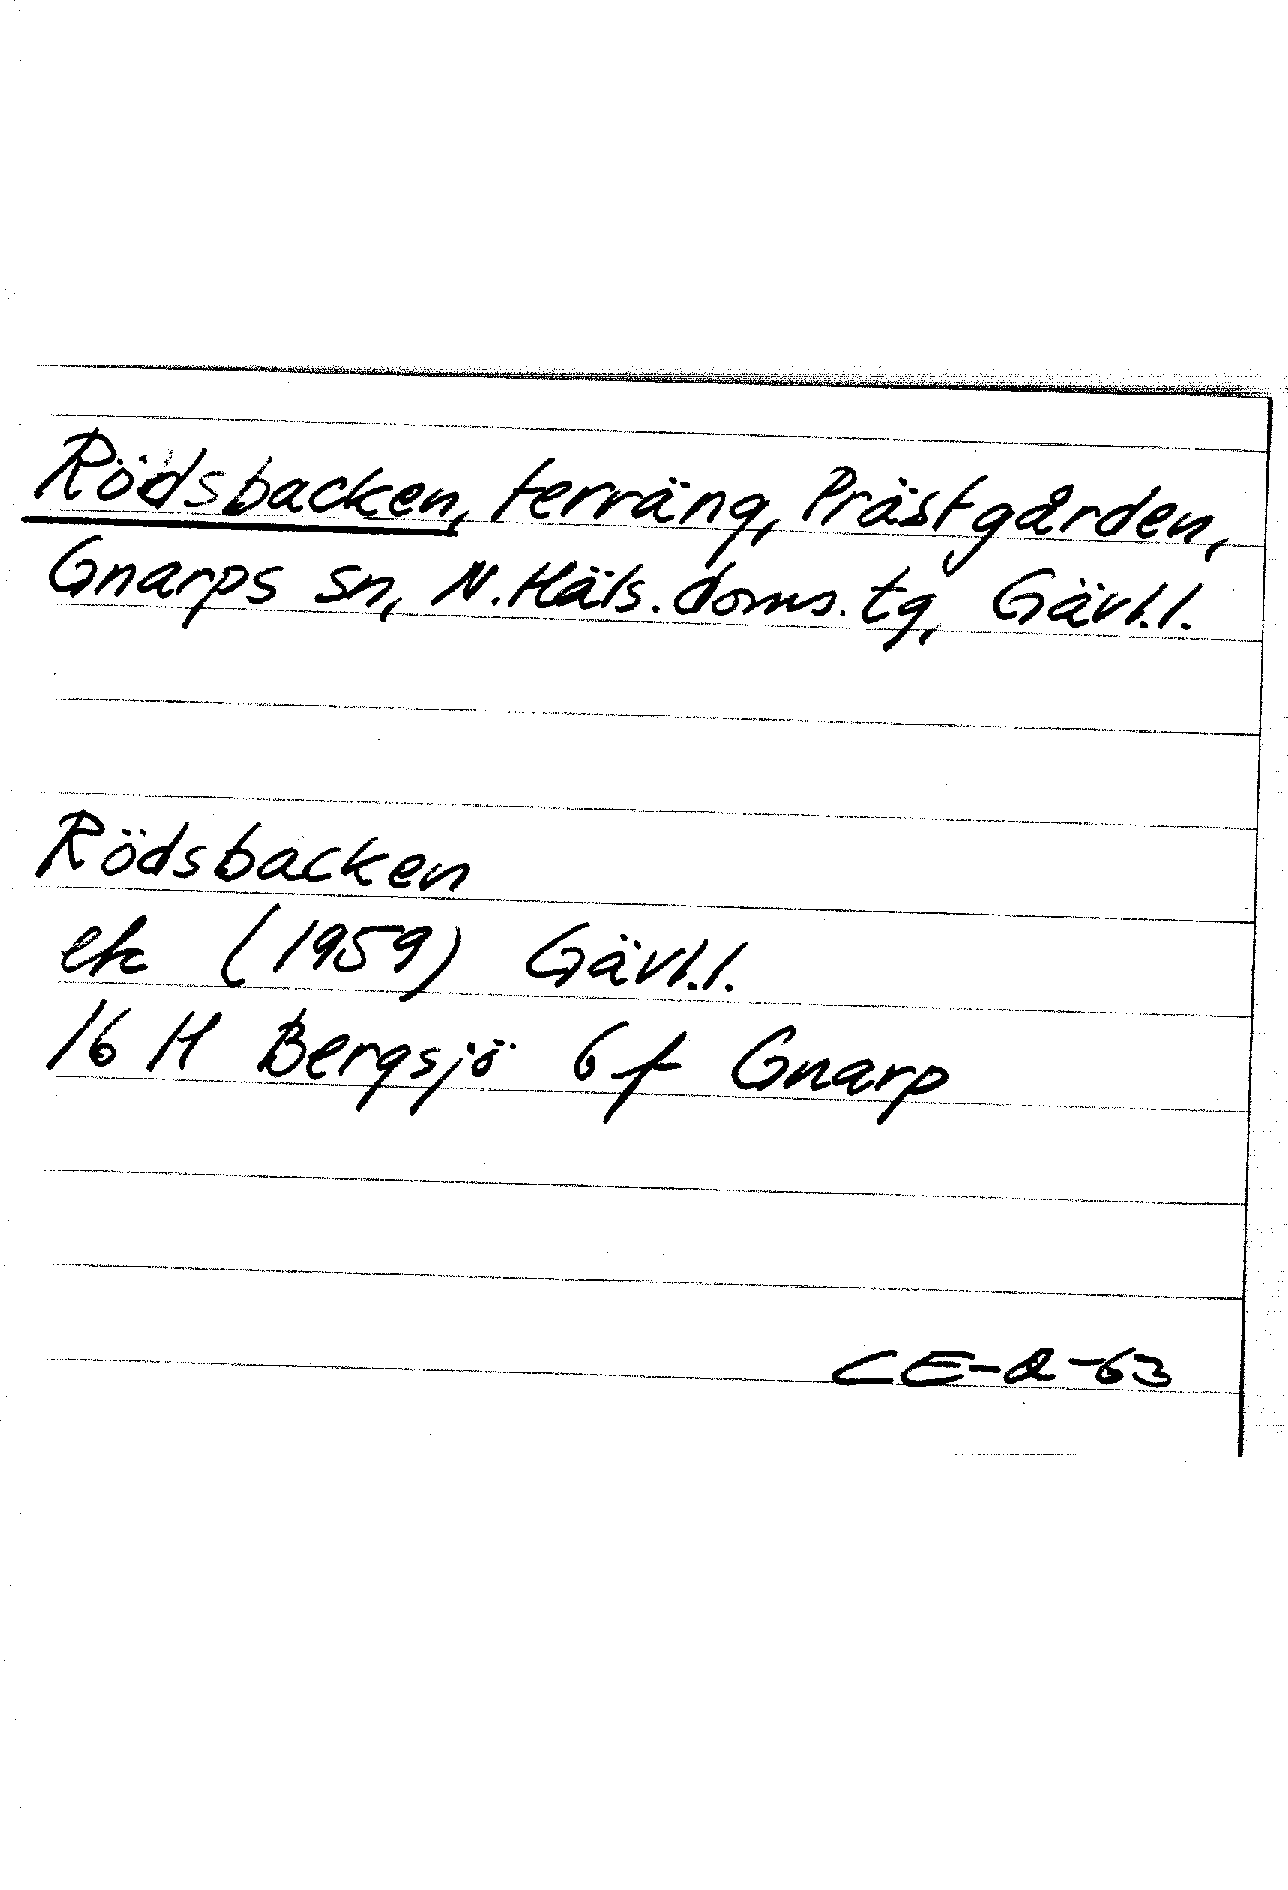 Rödsbacken, terräng, Prästgården,
Gnarps sn, N. Häls. doms. tg, Gävl.l.
Rödsbacken
ek (1959) Gävl.l.
16 H Bergsjö 6 f Gnarp
CE-Q-63